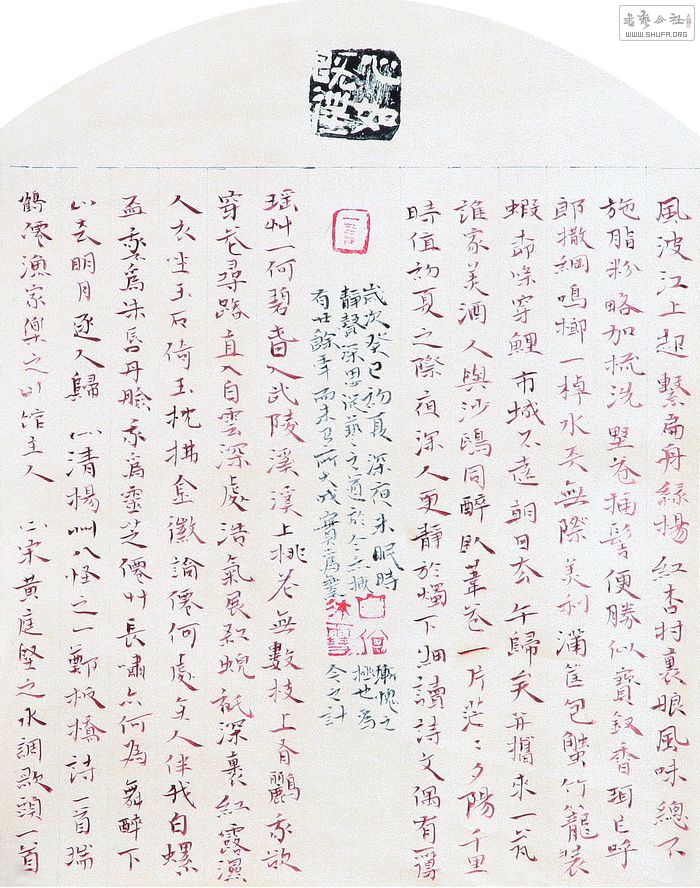 風波江上起繫扁舟緑楊紅杏村裏眼風味總不
施脂粉略加梳洗墅花插髻便勝似寶釵香珥乍呼
郎撒網鳴榔一棹水天無際美利蒲筐包蟹竹籠裝
蝦命條穿鯉市城不遠朝日去午歸矣并攜來一瓮
誰家美酒人與沙鷗同醉臥葦花一片茫〻夕陽千里
時值初夏之際夜深人更靜於燭下細讀詩文偶有
歲次癸巳初夏深夜未眠時
靜聲深思從藝之道於今亦
有廿餘年而未有所大成實為
慚愧之
極也為
今之計
瑶艸一何碧春入武陵溪溪上桃花無數枝上有鸝我欲
穿花尋路直入白雲深處浩氣展虹蜺祇深裏紅露濕
人衣坐玉石倚玉枕拂金徽謫僊何處無人伴我白螺
盃我為朱唇丹臉我為靈芝僊艸長嘯亦何為舞醉下
山去明月逐人歸以清揚州八怪之一鄭板橋詩一首瑞
鶴僊漁家樂之 館主人 以宋黄庭堅之水調歌頭一首
書藝公社
WWW.SHUFA.ORG